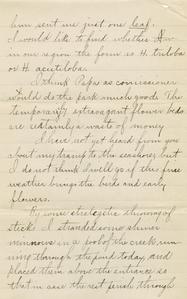 him sent me just one leaf.
I would like to find whether
in our region the form is H. triloba
or H. acutiloba.
I think Papa as commissioner
would do the park much good. The
temporarily extravagant flower beds
are certainly a waste of money.
I have not yet heard from you
about my tramp to the seashore, but
I do not think I will go if this fine
weather brings the birds and early
flowers.
By some strategetic throwing of
sticks I stranded some shiner
minnows in a pool of the creek run
ning through the pond today, and
placed them above the entrance so
that in case the rest perish through